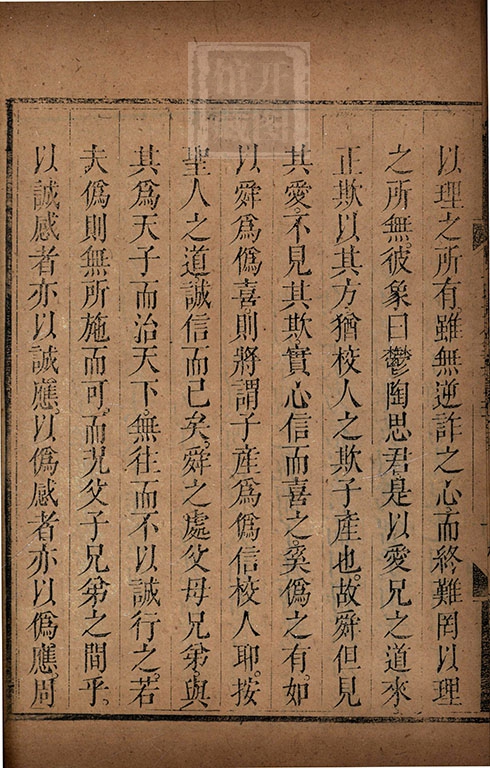 以理之所有雖無逆詐之心而終難罔以理
之所無彼象曰鬱陶思君是以愛兄之道來
正欺以其方猶校人之欺子產也故舜但見
其愛不見其欺實心信而喜之奚偽之有如
以舜爲偽喜則將謂子產爲偽信校人耶按
聖人之道誠信而已矣舜之處父母兄弟與
其爲天子而治天下無往而不以誠行之若
夫偽則無所施而可而况父子兄弟之間乎
以誠感者亦以誠應以偽感者亦以偽應周